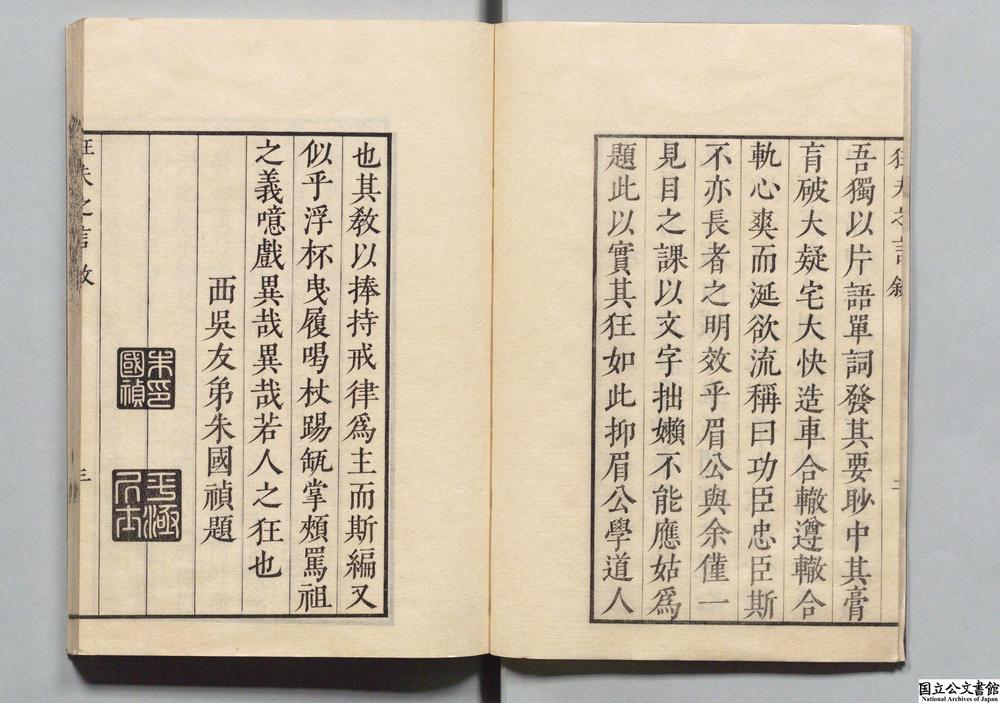 狂夫之言敘
吾獨以片語單詞發其要眇中其膏
肓破大疑宅大快造車合轍遵轍合
軌心爽而涎欲流稱曰功臣忠臣斯
不亦長者之明效乎眉公與余僅一
見目之課以文字拙嬾不能應姑爲
題此以實其狂如此抑眉公學道人
二
也其敎以捧持戒律爲主而斯編又
似乎浮杯曳履喝杖踢缻掌頰罵祖
之義噫戲異哉異哉若人之狂也
西吳友弟朱國禎題
朱印國禎
狂夫之言敘
三
国立公文書館
National Archives of Japan